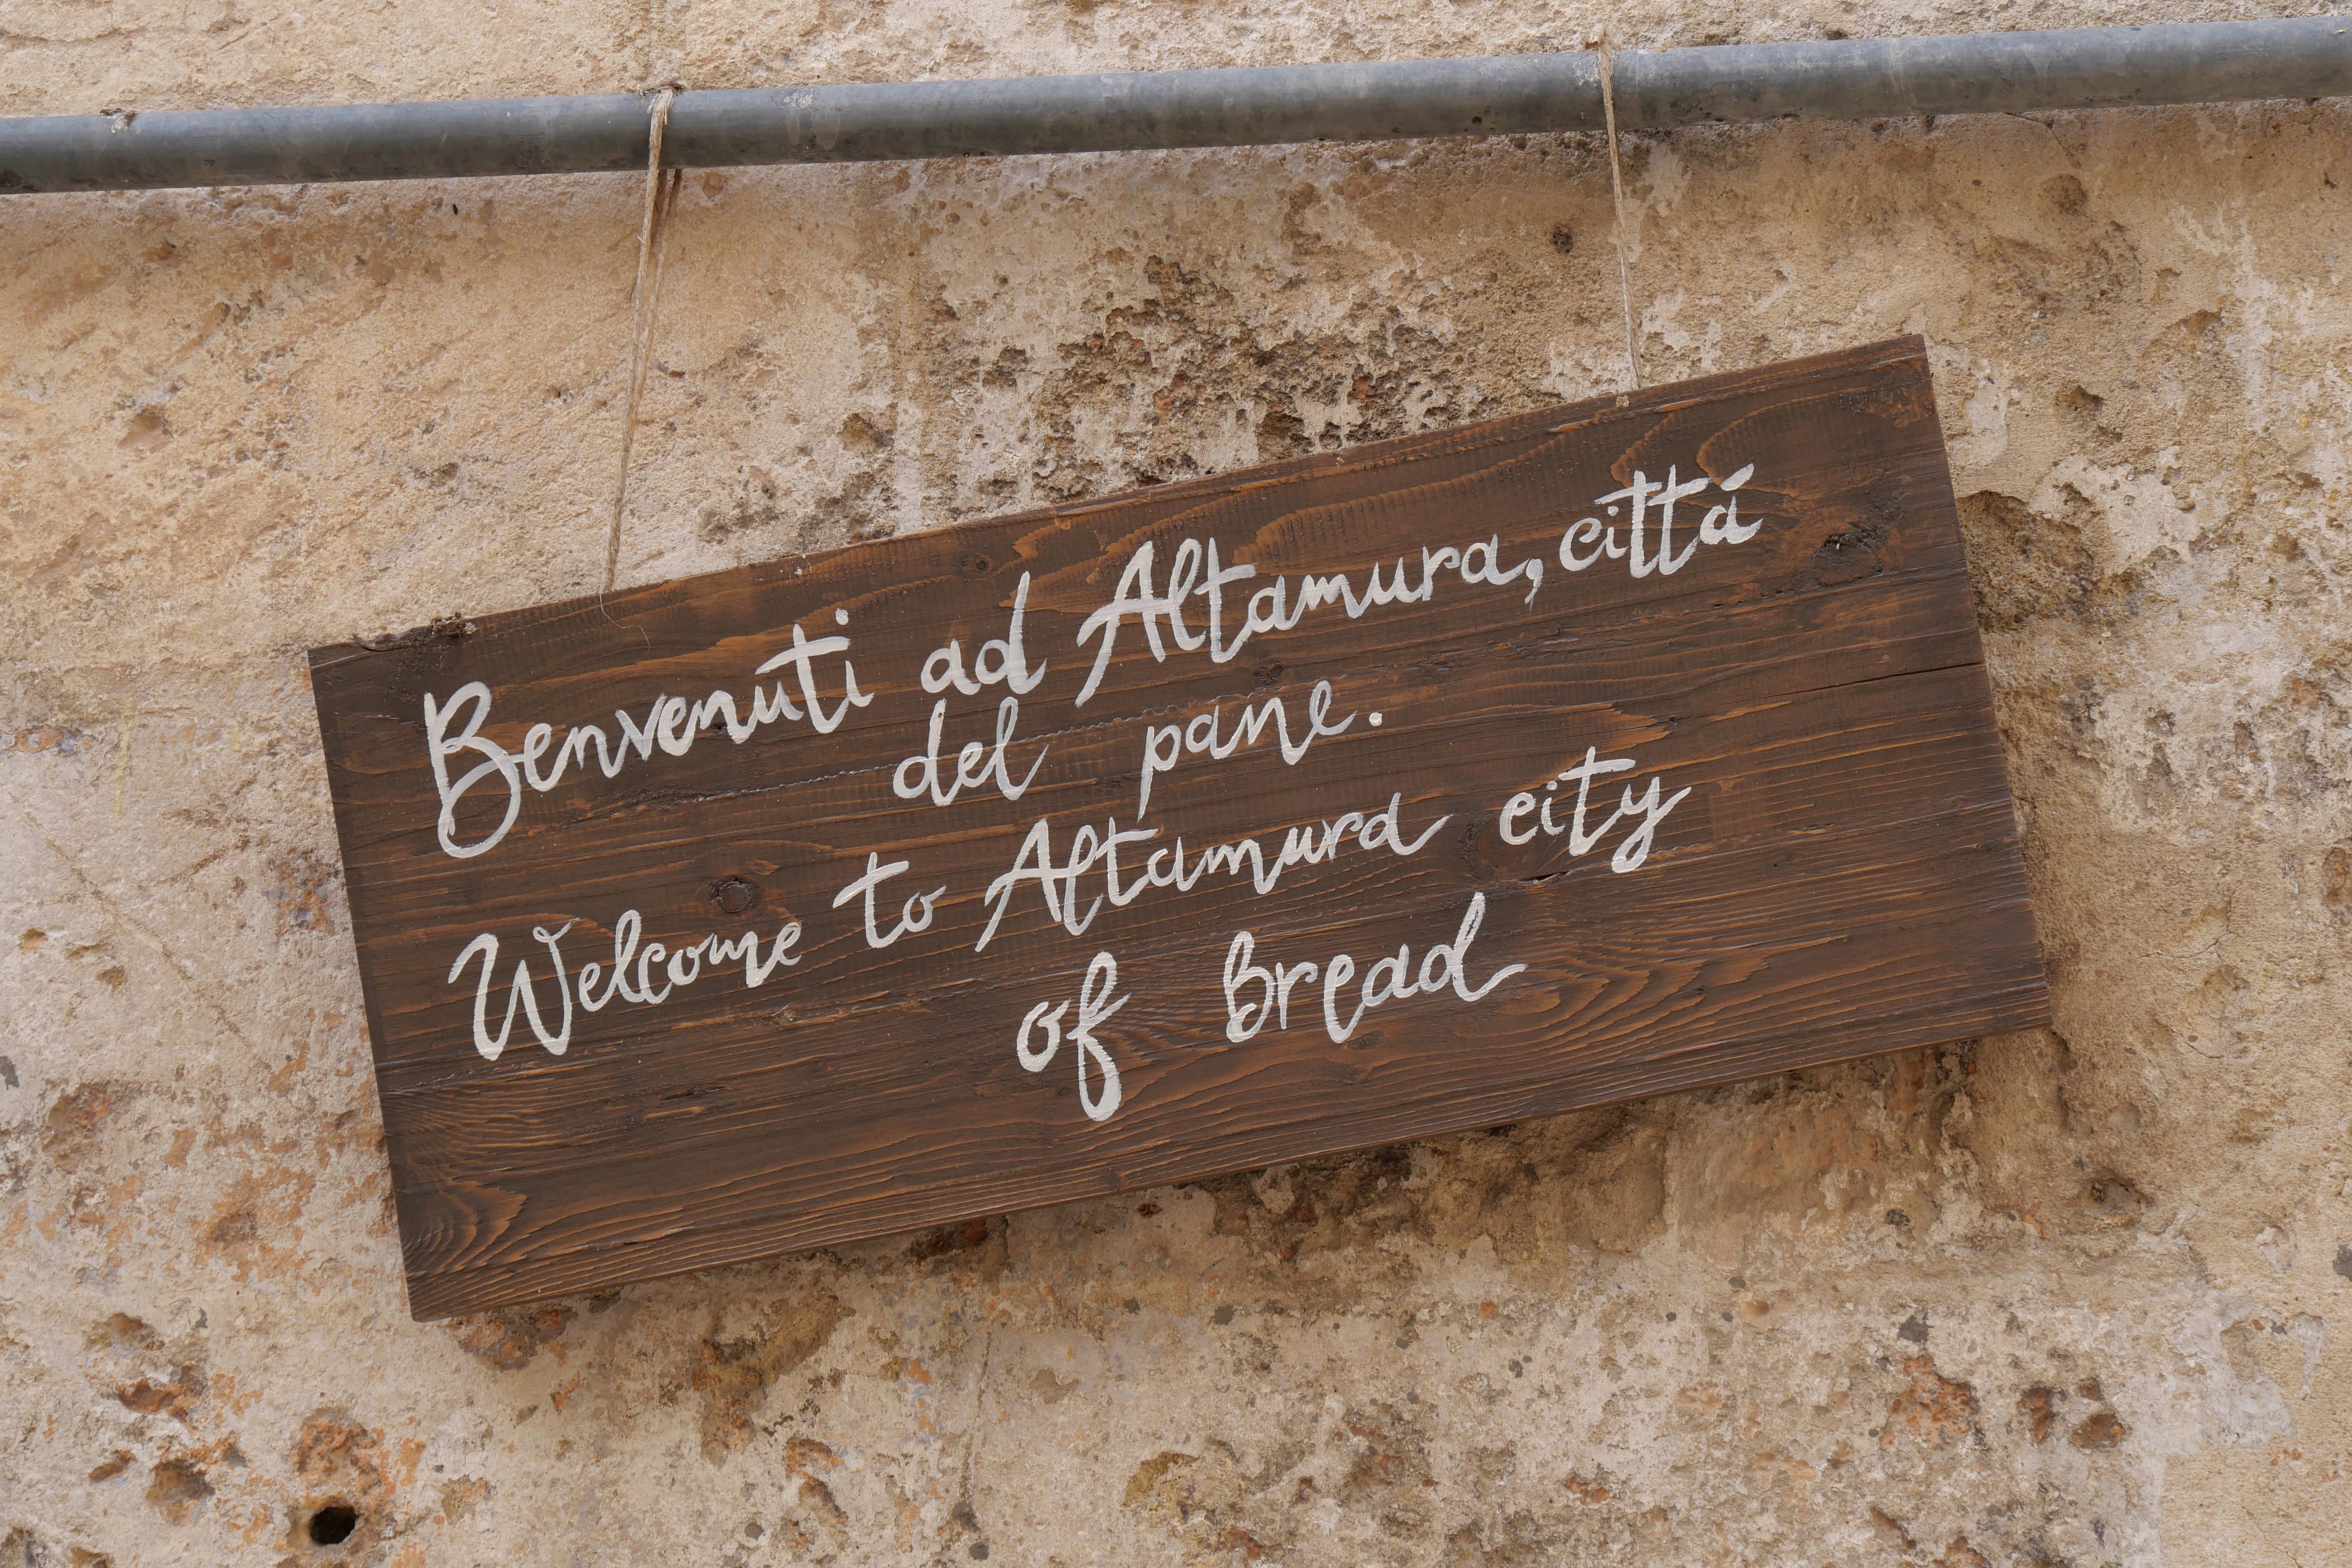 Benvenuti ad Altamura, cittá
del pane.
Welcome to Altamura city
of bread